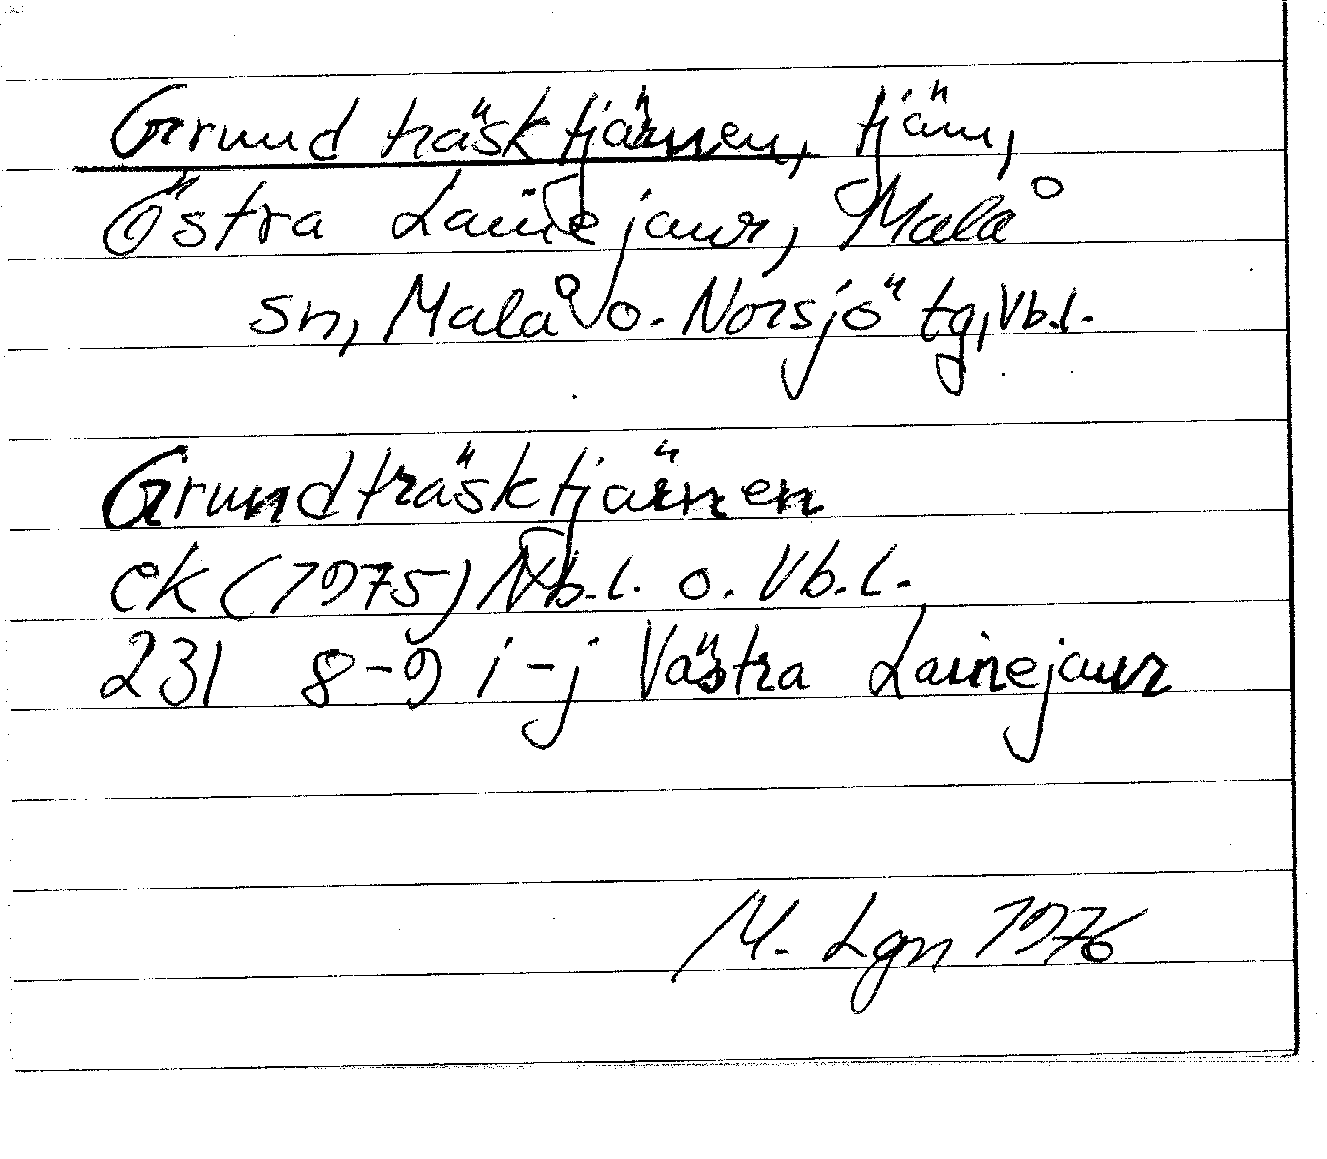 Grundträsktjärnen, tjärn,
Östra Lainejaur, Malå
sn, Malå o. Norsjö tg, Vb.l.
Grundträsktjärnen
ek (1975) Nb.l. o. Vb.l.
23I 8-9 i-j Västra Lainejaur
M. Lgn 1976